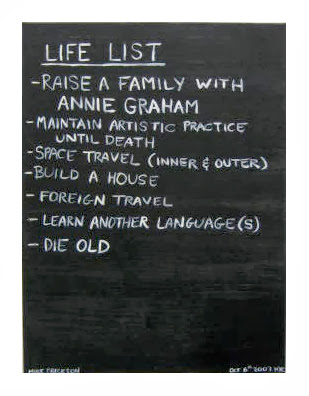 LIFE LIST
-RAISE A FAMILY WITH
ANNIE GRAHAM
-MAINTAIN ARTISTIC PRACTICE
UNTIL DEATH
-SPACE TRAVEL (INNER & OUTER)
-BUILD A HOUSE
- FOREIGN TRAVEL
- LEARN ANOTHER LANGUAGE(S)
- DIE OLD
OCT 6th 2007